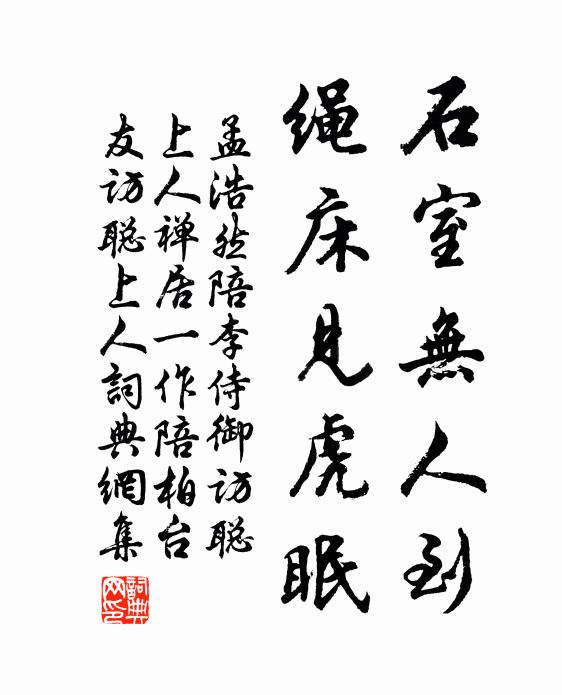 石室無人到
绳床見虎眠
孟浩然陪李侍御访聪
上人禅居一作陪柏台
友访聪上人詞典網集
詞典
网印